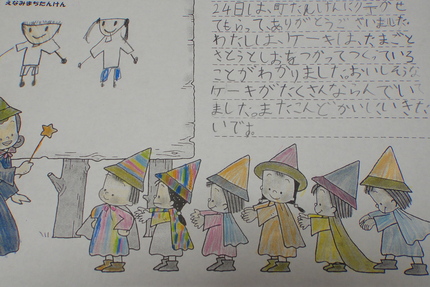 えなみまちたんけん
24日は、町たんけんにいかせ
てもらって、ありがとうございました。
わたしは、ケーキは、たまごと
さとうとしおをつかってつくっている
ことがわかりました。おいしそうな
ケーキがたくさんならんでい
ました。またこんどかいにいきた
いです。